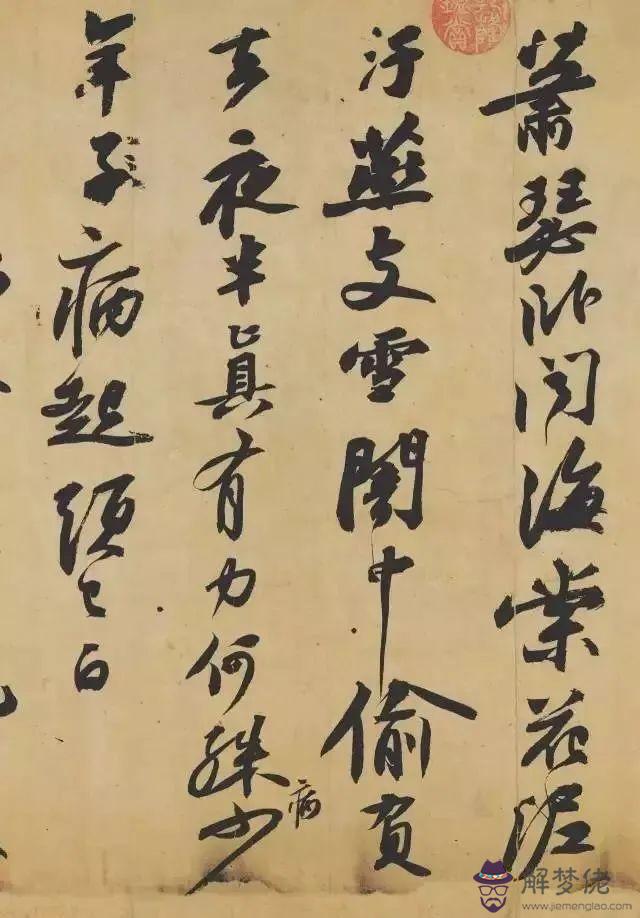 蕭瑟卧聞海棠花泥
汙燕支雪闇中偷負
去夜半眞有力何殊少
病
年子病起頭已白
解梦佬
www.jiemenglao.com